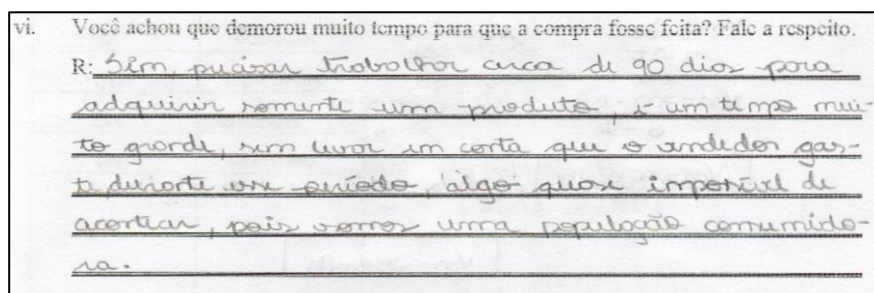 vi. Você achou que demorou muito tempo para que a compra fosse feita? Fale a respeito.
R: Sim, precisar trabalhar cerca de 90 dias para
adquirir somente um produto, é um tempo mui-
to grande, sem levar em conta que o vendedor gas-
te durante esse período, algo quase impossível de
acontecer, pois somos uma população consumido-
ra.